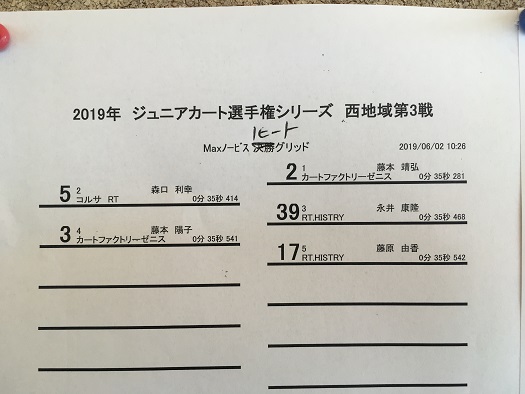 2019年 ジュニアカート選手権シリーズ 西地域第3戦
1ヒート
Maxノービス 決勝グリッド
2019/06/02 10:26
2 1 藤本 靖弘
カートファクトリーゼニス 0分 35秒 281
5 2 森口 利幸
コルサ RT 0分 35秒 414
39 3 永井 康隆
RT.HISTRY 0分 35秒 468
3 4 藤本 陽子
カートファクトリーゼニス 0分 35秒 541
17 5 藤原 由香
RT.HISTRY 0分 35秒 542